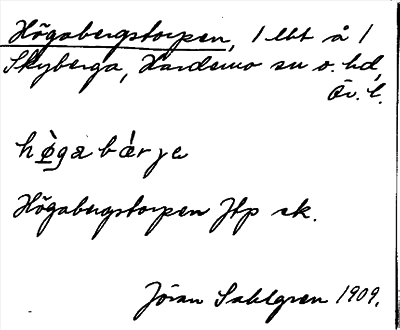 Högabergstorpen, 1 lht å 1
Skyberga, Hardemo sn o. hd,
Ör. l.
hø̀ga bæ̀rje
Högabergstorpen Jtp ek.
Jöran Sahlgren 1909.